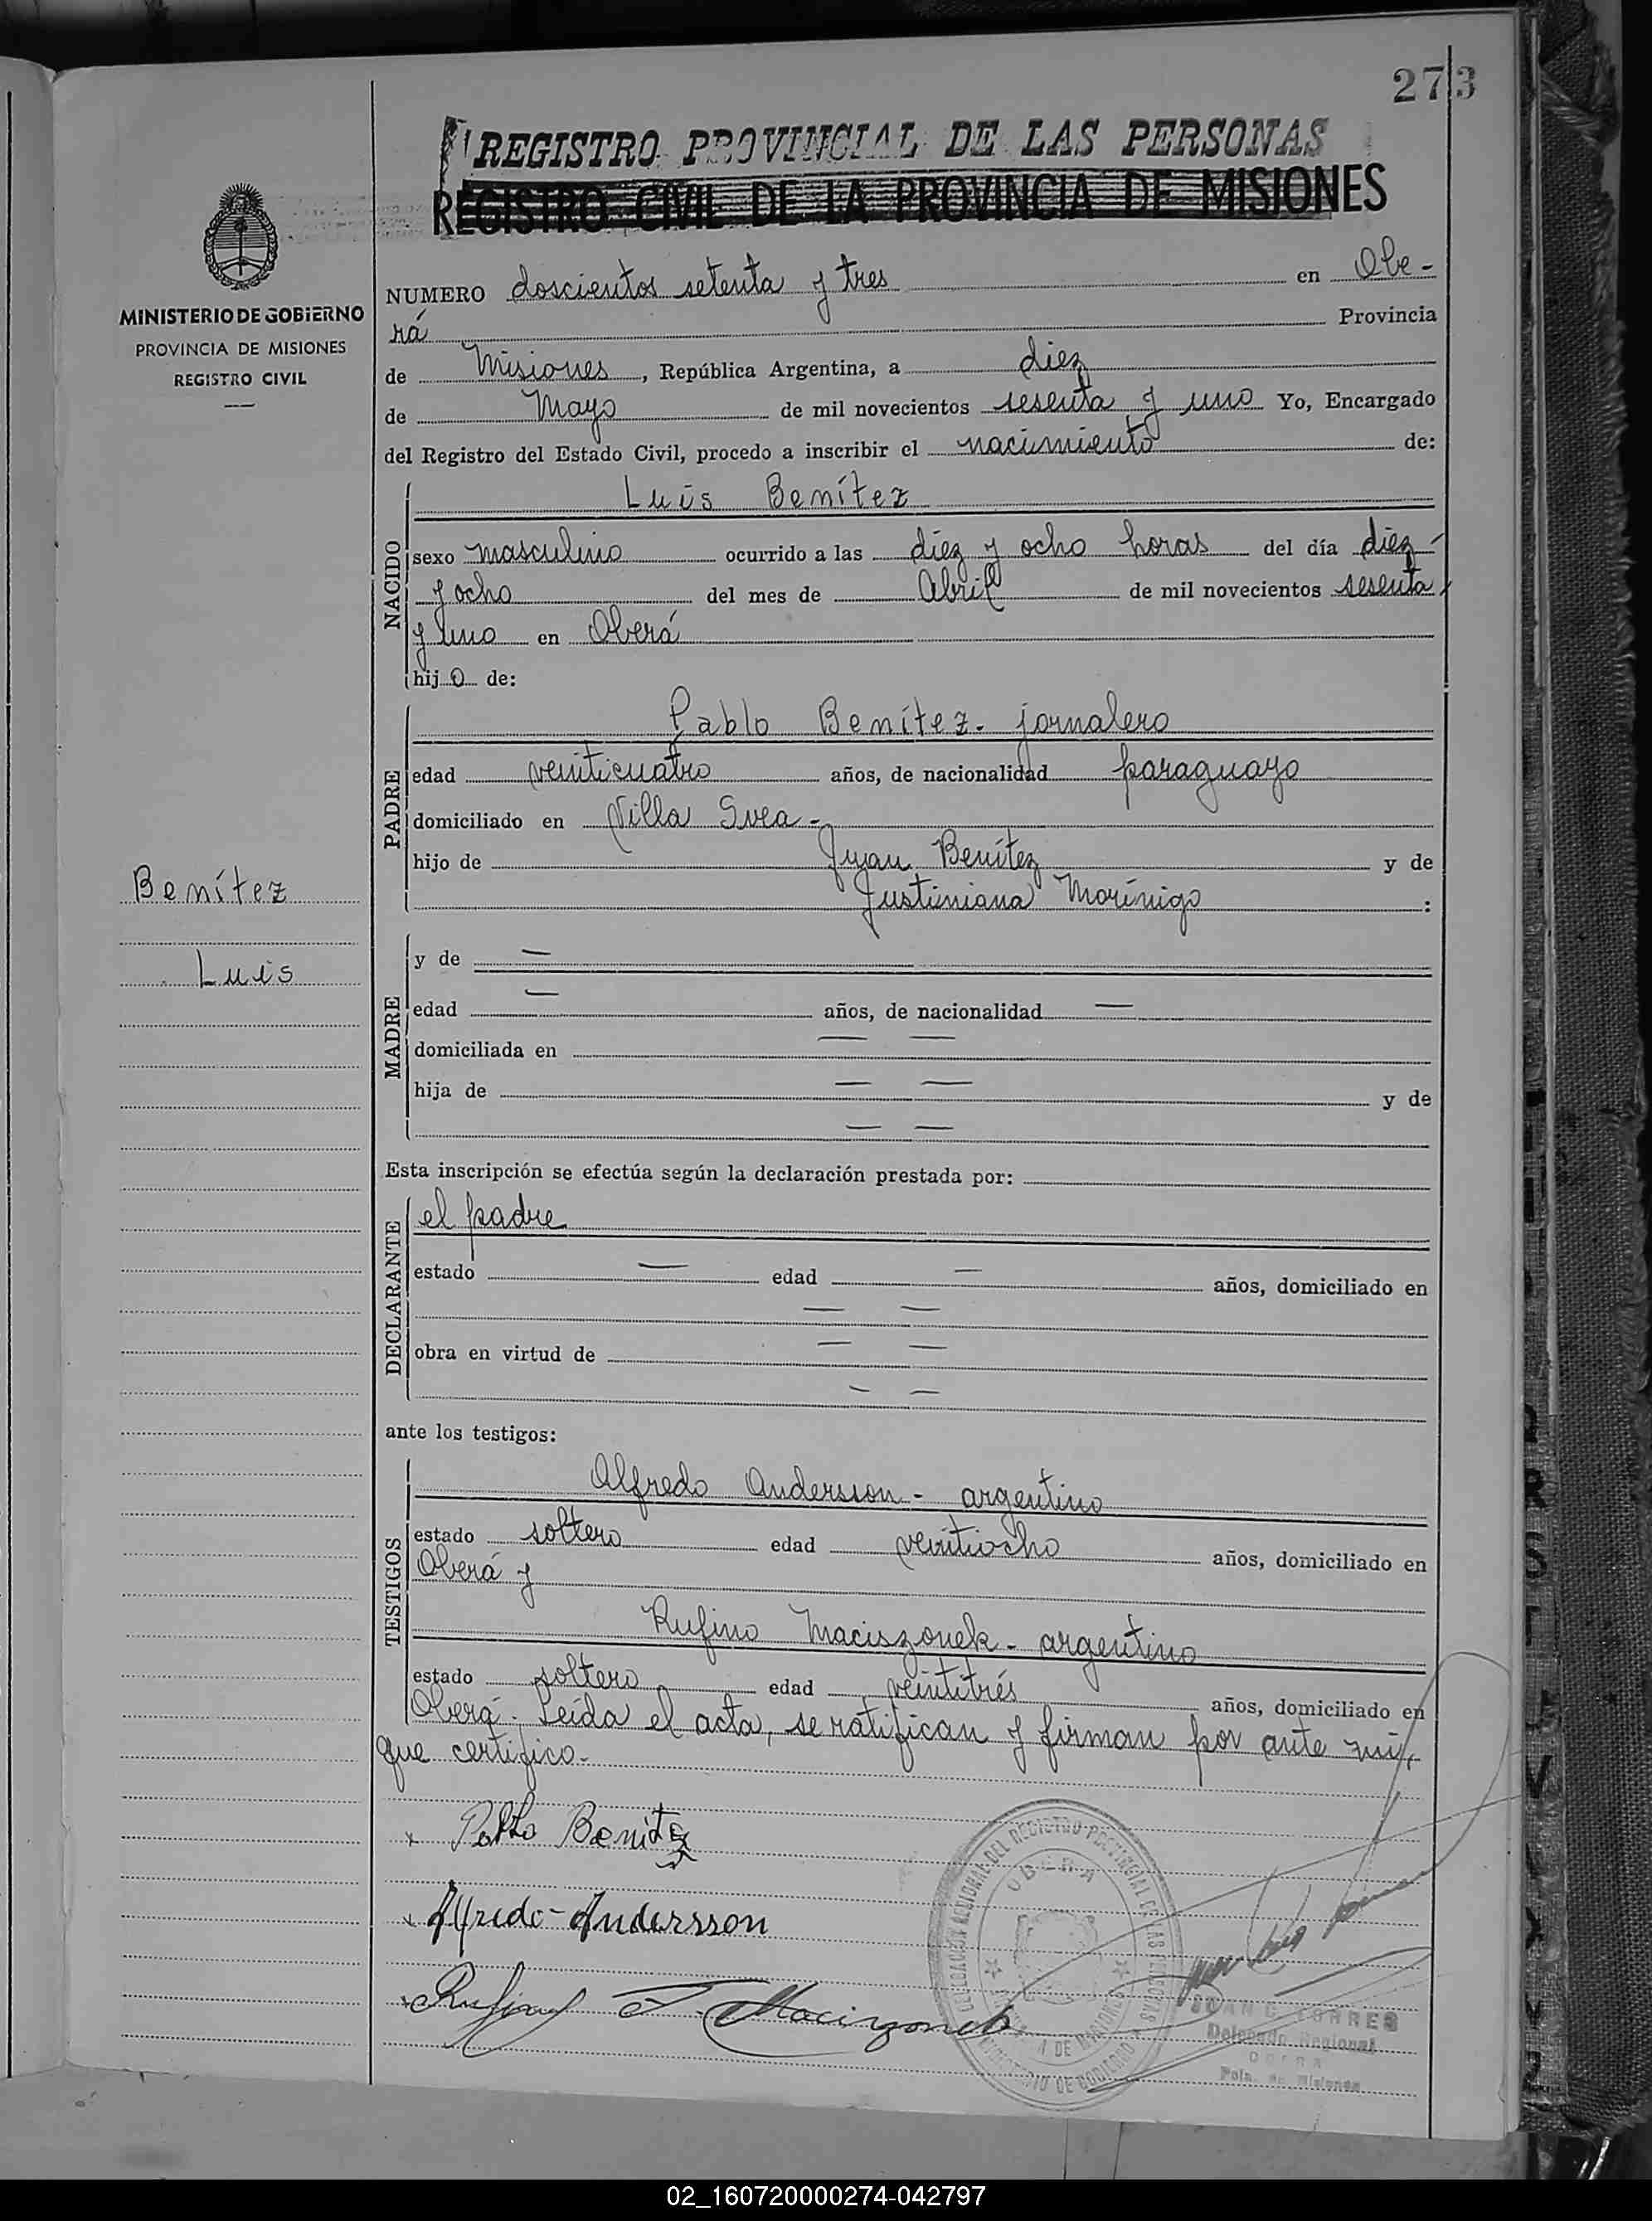 273
REGISTRO PROVINCIAL DE LAS PERSONAS
REGISTRO CIVIL DE LA PROVINCIA DE MISIONES
MINISTERIO DE GOBIERNO
PROVINCIA DE MISIONES
REGISTRO CIVIL
NUMERO doscientos setenta y tres en Obe-
rá Provincia
de Misiones, República Argentina, a diez
de Mayo de mil novecientos sesenta y uno Yo, Encargado
del Registro del Estado Civil, procedo a inscribir el nacimiento de:
NACIDO
Luis Benítez
sexo masculino ocurrido a las diez y ocho horas del día diez
y ocho del mes de Abril de mil novecientos sesenta
y uno en Oberá
hijo de:
PADRE
Pablo Benítez - jornalero
edad veinticuatro años, de nacionalidad paraguayo
domiciliado en Villa Svea -
hijo de Juan Benítez y de
Justiniana Morínigo :
Benítez
Luis
MADRE
y de —
edad — años, de nacionalidad —
domiciliada en — —
hija de — — y de
— —
Esta inscripción se efectúa según la declaración prestada por:
DECLARANTE
el padre
estado — edad — años, domiciliado en
— —
obra en virtud de — —
— —
ante los testigos:
TESTIGOS
Alfredo Andersson - argentino
estado soltero edad veintiocho años, domiciliado en
Oberá y
Rufino Maciszonek - argentino
estado soltero edad veintitrés años, domiciliado en
Oberá. Leída el acta, se ratifican y firman por ante mí,
que certifico.-
x Pablo Benitez
x Alfredo-Andersson
x Rufino Maciszonek
DELEGACIÓN REGIONAL DEL REGISTRO PROVINCIAL DE LAS PERSONAS
OBERA
MINISTERIO DE GOBIERNO
JUAN C. TORRES
Delegado Regional
OBERA
Pcia. de Misiones
02_160720000274-042797